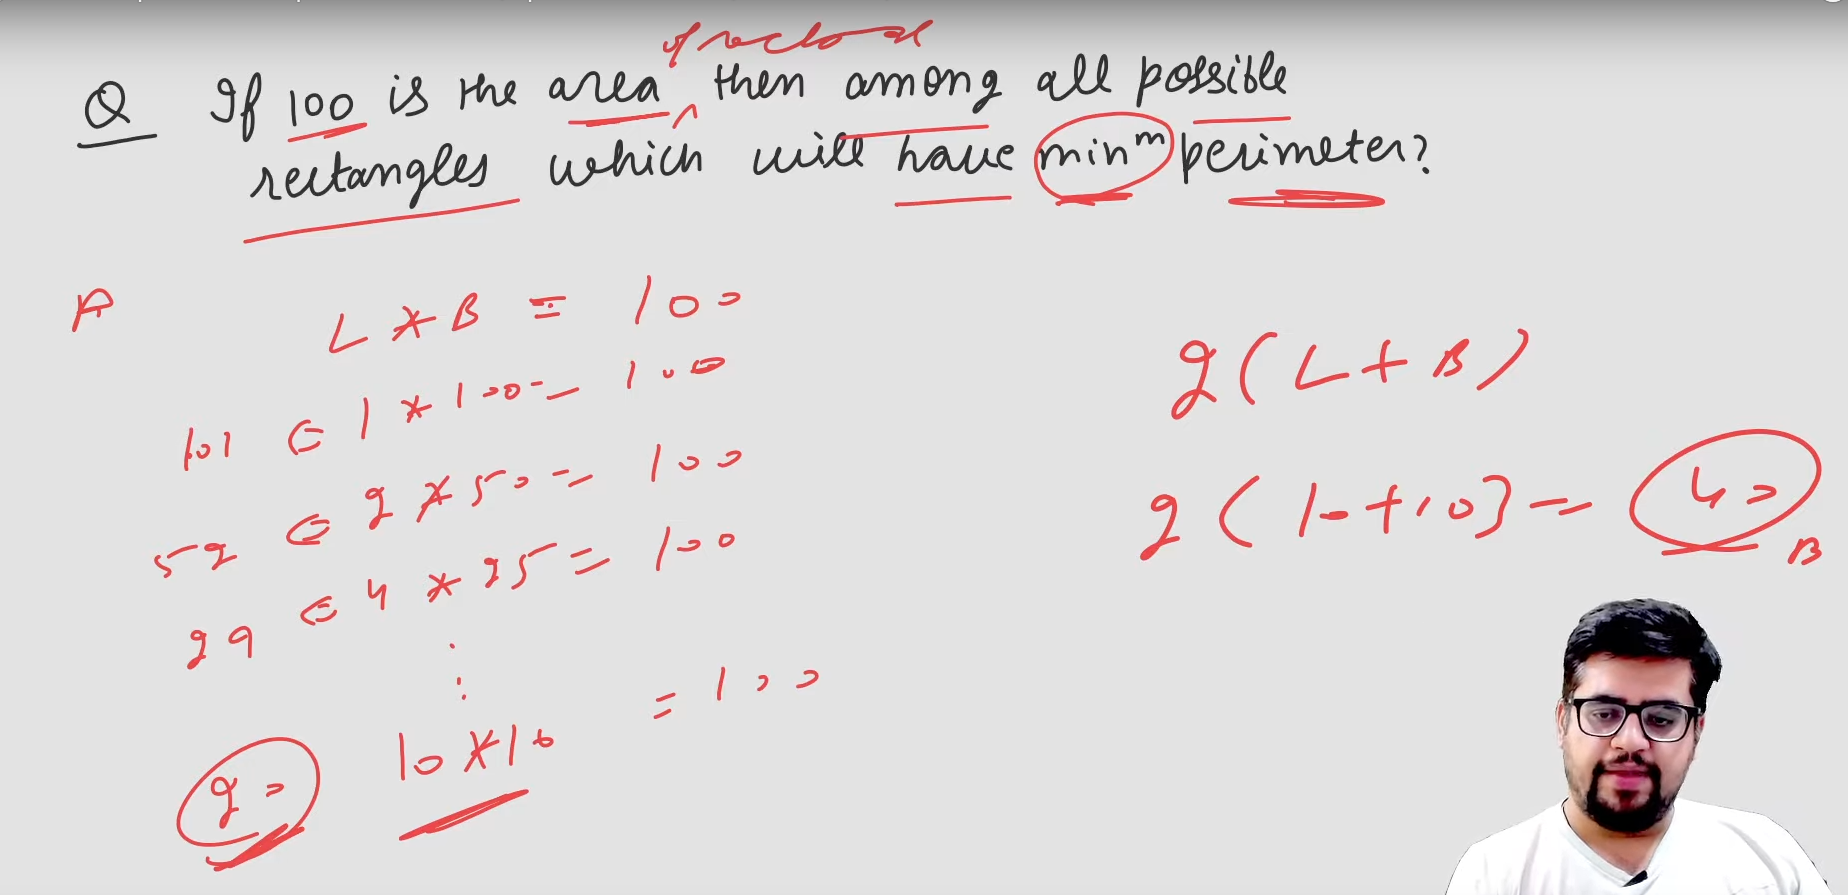 of rectangle
Q If 100 is the area ^ then among all possible
rectangles which will have minᵐ perimeter?
A
L * B = 100
101 ⇐ 1 * 100 = 100
52 ⇐ 2 * 50 = 100
29 ⇐ 4 * 25 = 100
20 10 * 10 = 100
2(L + B)
2(10 + 10) = 40
B